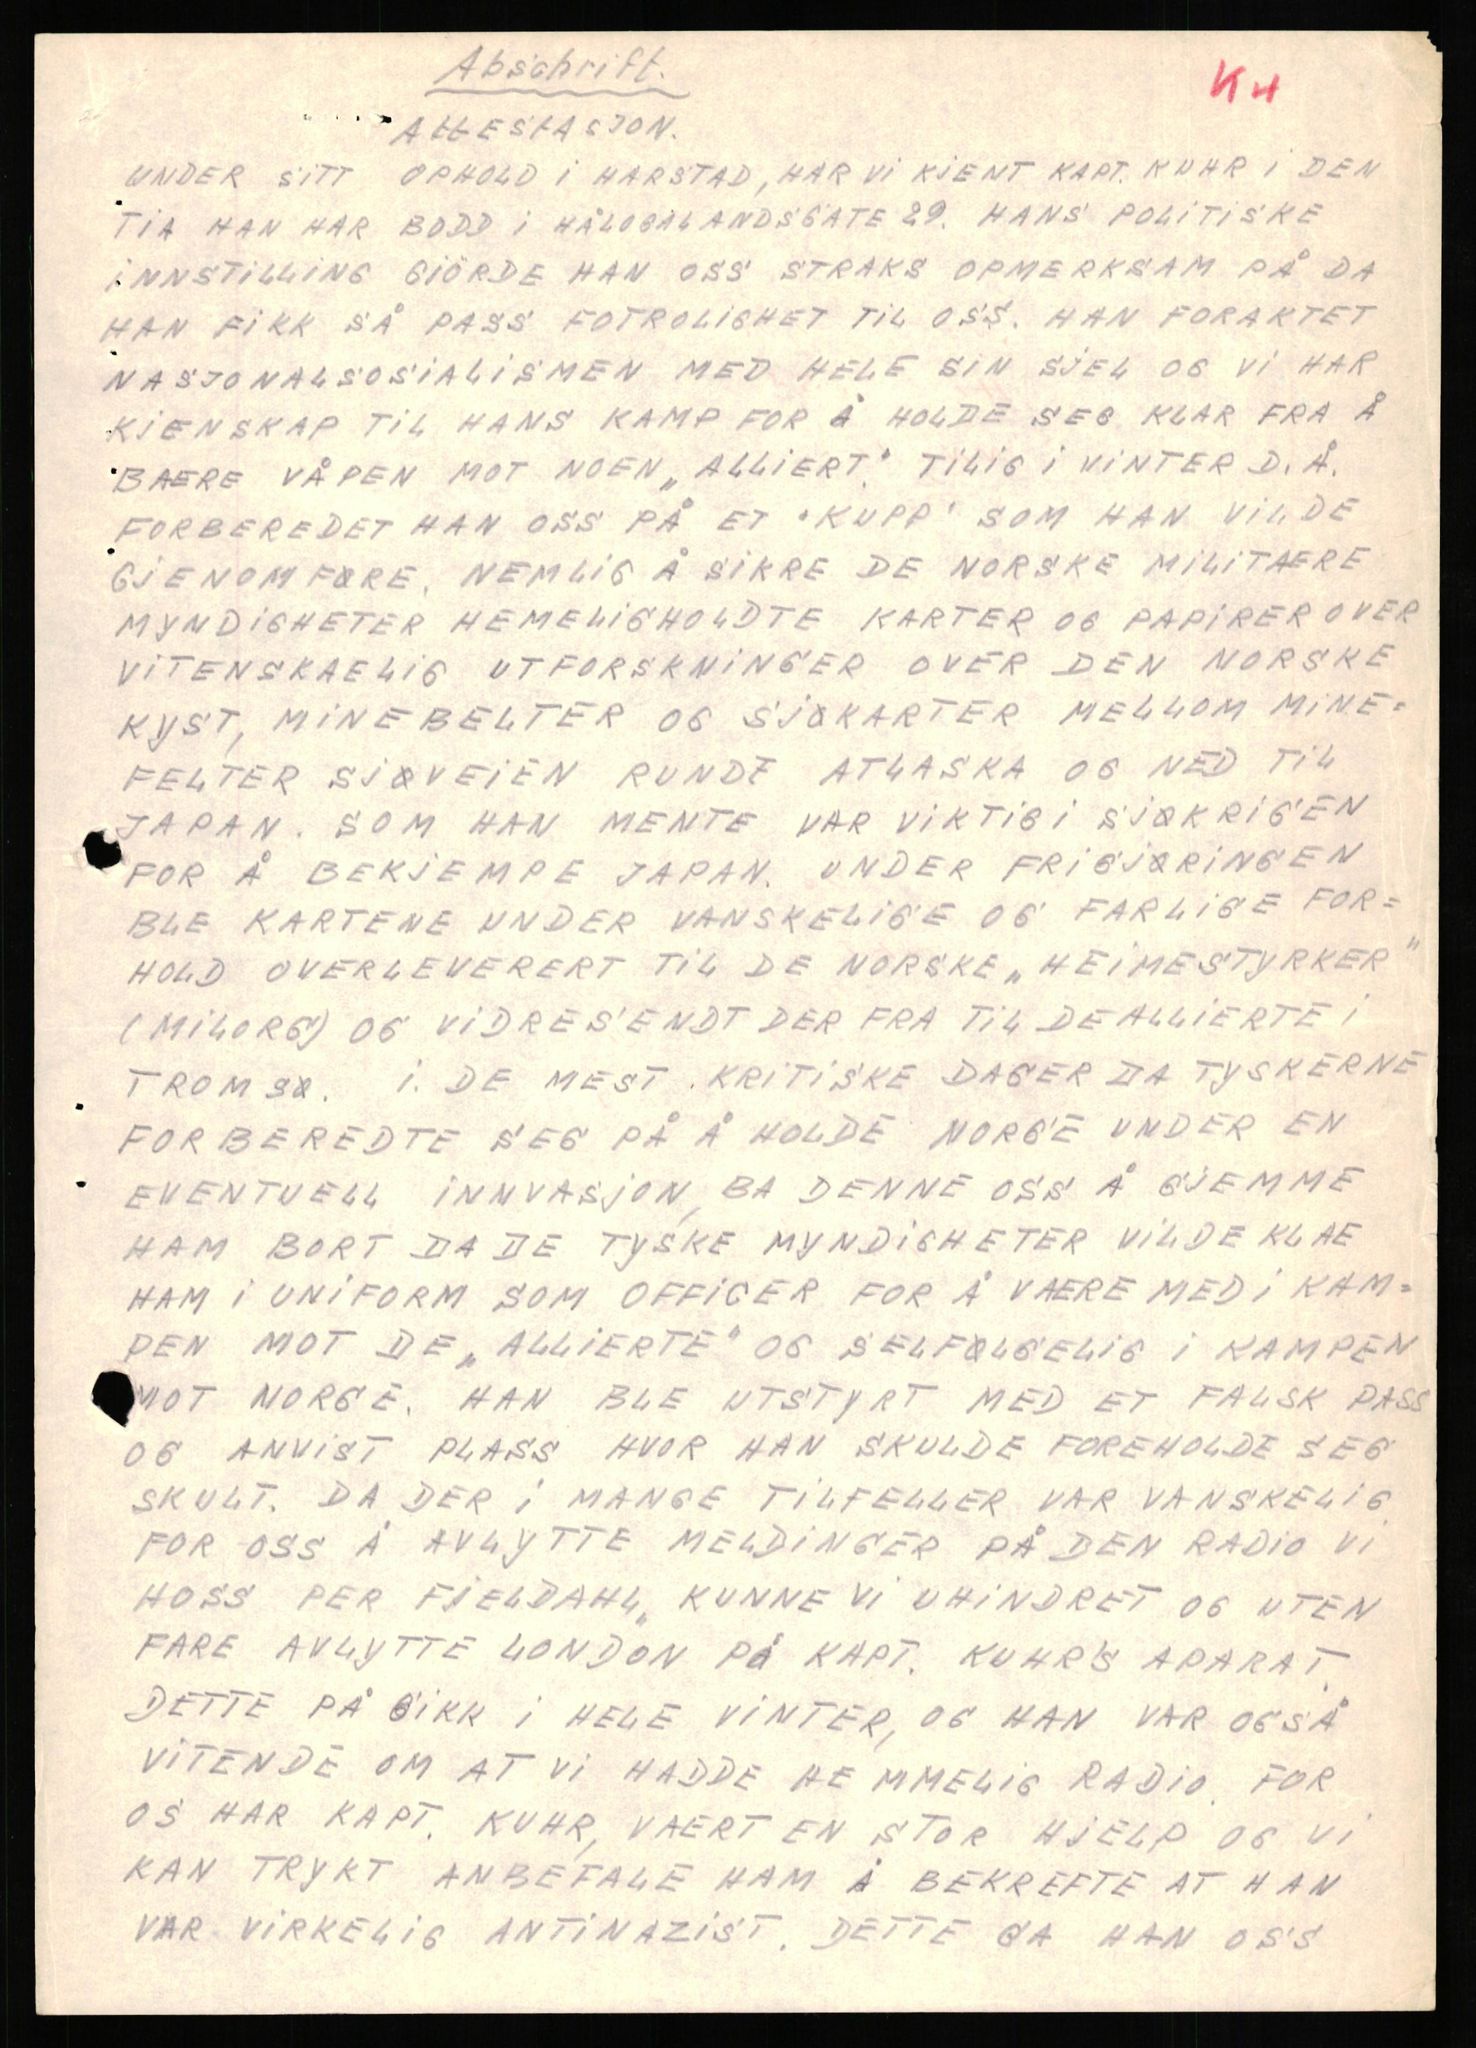 Abschrift.
K H
ATTESTASJON.
UNDER SITT OPHOLD I HARSTAD, HAR VI KJENT KAPT. KUHR I DEN
TIA HAN HAR BODD I HÅLOGALANDSGATE 29. HANS POLITISKE
INNSTILLING GIÖRDE HAN OSS STRAKS OPMERKSAM PÅ DA
HAN FIKK SÅ PASS FOTROLIGHET TIL OSS. HAN FORAKTET
NASJONALSOSIALISMEN MED HELE SIN SJEL OG VI HAR
KJENSKAP TIL HANS KAMP FOR Å HOLDE SEG KLAR FRA Å
BAERE VÅPEN MOT NOEN „ALLIERT". TILIG I VINTER D.Å.
FORBEREDET HAN OSS PÅ ET "KUPP" SOM HAN VILDE
GJENOMFØRE. NEMLIG Å SIKRE DE NORSKE MILITÆRE
MYNDIGHETER HEMELIGHOLDTE KARTER OG PAPIRER OVER
VITENSKAELIG UTFORSKNINGER OVER DEN NORSKE
KYST, MINEBELTER OG SJØKARTER MELLOM MINE=
FELTER SJØVEIEN RUNDT ATLASKA OG NED TIL
JAPAN. SOM HAN MENTE VAR VIKTIG I SJØKRIGEN
FOR Å BEKJEMPE JAPAN. UNDER FRIGJØRINGEN
BLE KARTENE UNDER VANSKELIGE OG FARLIGE FOR=
HOLD OVERLEVERERT TIL DE NORSKE „HEIMESTYRKER"
(MILORG) OG VIDRESENDT DER FRA TIL DE ALLIERTE I
TROMSØ. I. DE MEST KRITISKE DAGER DA TYSKERNE
FORBEREDTE SEG PÅ Å HOLDE NORGE UNDER EN
EVENTUELL INNVASJON, BA DENNE OSS Å GJEMME
HAM BORT DA DE TYSKE MYNDIGHETER VILDE KLAE
HAM I UNIFORM SOM OFFICER FOR Å VÆRE MED I KAM=
PEN MOT DE „ALLIERTE" OG SELFØLGELIG I KAMPEN
MOT NORGE. HAN BLE UTSTYRT MED ET FALSK PASS
OG ANVIST PLASS HVOR HAN SKULDE FOREHOLDE SEG
SKULT. DA DER I MANGE TILFELLER VAR VANSKELIG
FOR OSS Å AVLYTTE MELDINGER PÅ DEN RADIO VI
HOSS PER FJELDAHL, KUNNE VI UHINDRET OG UTEN
FARE AVLYTTE LONDON PÅ KAPT. KUHR'S APARAT.
DETTE PÅ GIKK I HELE VINTER, OG HAN VAR OGSÅ
VITENDE OM AT VI HADDE HEMMELIG RADIO. FOR
OS HAR KAPT. KUHR, VAERT EN STOR HJELP OG VI
KAN TRYKT ANBEFALE HAM Å BEKREFTE AT HAN
VAR VIRKELIG ANTINAZIST. DETTE GA HAN OSS